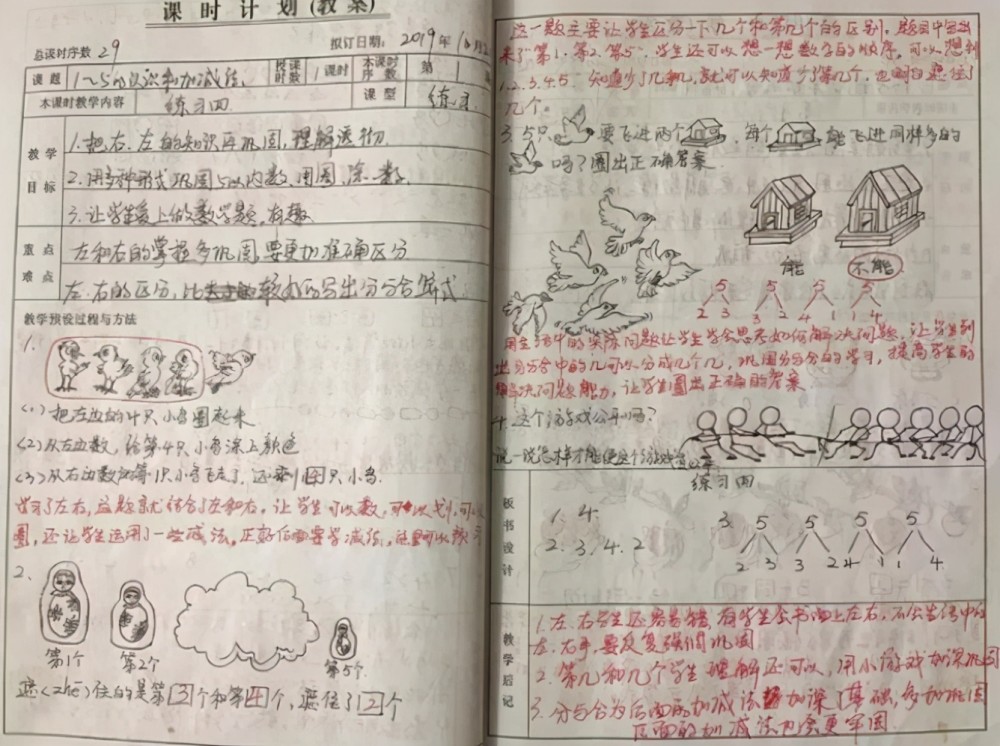 课时计划(教案)
总课时序数 29 拟订日期: 2019年10月2
课题 1~5的认识和加减法 授课时数 1课时 本课时序数 第1
本课时教学内容 练习四 课型 练习
教学目标
1.把右、左的知识再巩固,理解透彻.
2.用多种形式巩固5以内数,用圈,涂一数.
3.让学生爱上做数学题,有趣
重点难点
左和右的掌握多巩固,要更加准确区分
左.右的区分,比较好的写出分与合算式.
教学预设过程与方法
1.
(1)把左边的4只小鸟圈起来
(2)从左边数,给第4只小鸟涂上颜色
(3)从右边数第1只小鸟飞走了,还剩4只小鸟.
学习了左右,这题就结合了左和右,让学生可以数,可以划,可以
圈,还让学生运用了一些减法,正好后面要学减法,这里可以预习
2、
第1个 第2个 第5个.
遮(zhē)住的是第3个和第4个,遮住了2个
这一题主要让学生区分一下几个和第几个的区别,题目中写出
来了第1.第2.第5.学生还可以想一想数字的顺序,可以想到
1.2.3.4.5.知道少了几和几,就可以知道少了第几个,也明白遮住了
几个。
3.5只 要飞进两个 ,每个 能飞进同样多的
吗?圈出正确答案
能 不能
5 5 5 5
2 3 3 2 4 1 1 4
用生活中的实际问题让学生学会思考如何解决问题,让学生列
出5的分合中的几可以分成几个几,巩固分与合的学习,提高学生的
解决问题能力,让学生圈出正确的答案
4.这个游戏公平吗?
说一说怎样才能使这个游戏公平.
板书设计
练习四
1. 4. 3. 5 5 5 5
2. 3. 4. 2 2 3 3 2 4 1 1 4
教学后记
1.左.右学生还容易错,有学生会书面上左右,不会生活中的
左.右手,要反复强调巩固
2.第几和几个学生理解还可以,用小游戏加深巩固
3.分与合为后面的加减法加深了基础,多加巩固
后面的加减法也会更牢固